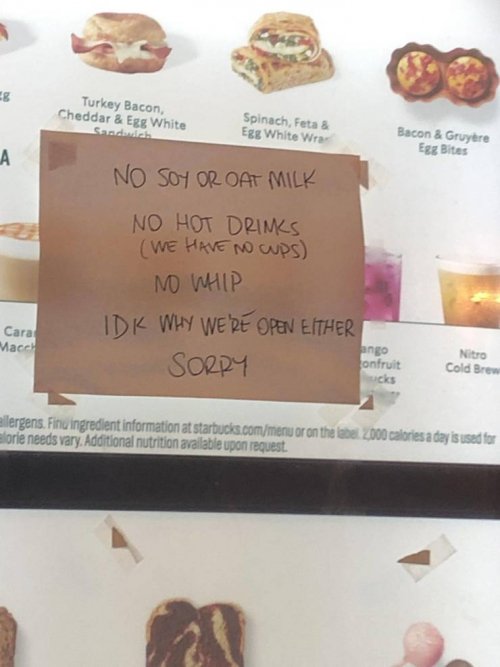 Turkey Bacon,
Cheddar & Egg White
Sandwich
Spinach, Feta &
Egg White Wrap
Bacon & Gruyère
Egg Bites
A
NO SOY OR OAT MILK
NO HOT DRINKS
(WE HAVE NO CUPS)
NO WHIP
IDK WHY WE'RE OPEN EITHER
SORRY
Nitro
Cold Brew
allergens. Find ingredient information at starbucks.com/menu or on the label. 2,000 calories a day is used for
calorie needs vary. Additional nutrition available upon request.